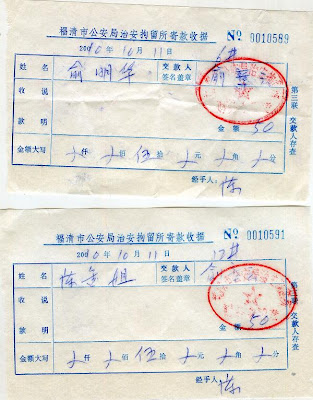 福清市公安局治安拘留所寄款收据
№ 0010589
2010年10月11日
姓名 俞明华 交款人签名盖章 俞
收款说明
金额 50
金额大写 仟 佰 伍拾 元 角 分
经手人: 陈
第三联 交款人存查
福清市公安局治安拘留所寄款收据
№ 0010591
2010年10月11日
姓名 陈 姐 交款人签名盖章
收款说明
金额 50
金额大写 仟 佰 伍拾 元 角 分
经手人: 陈
第三联 交款人存查